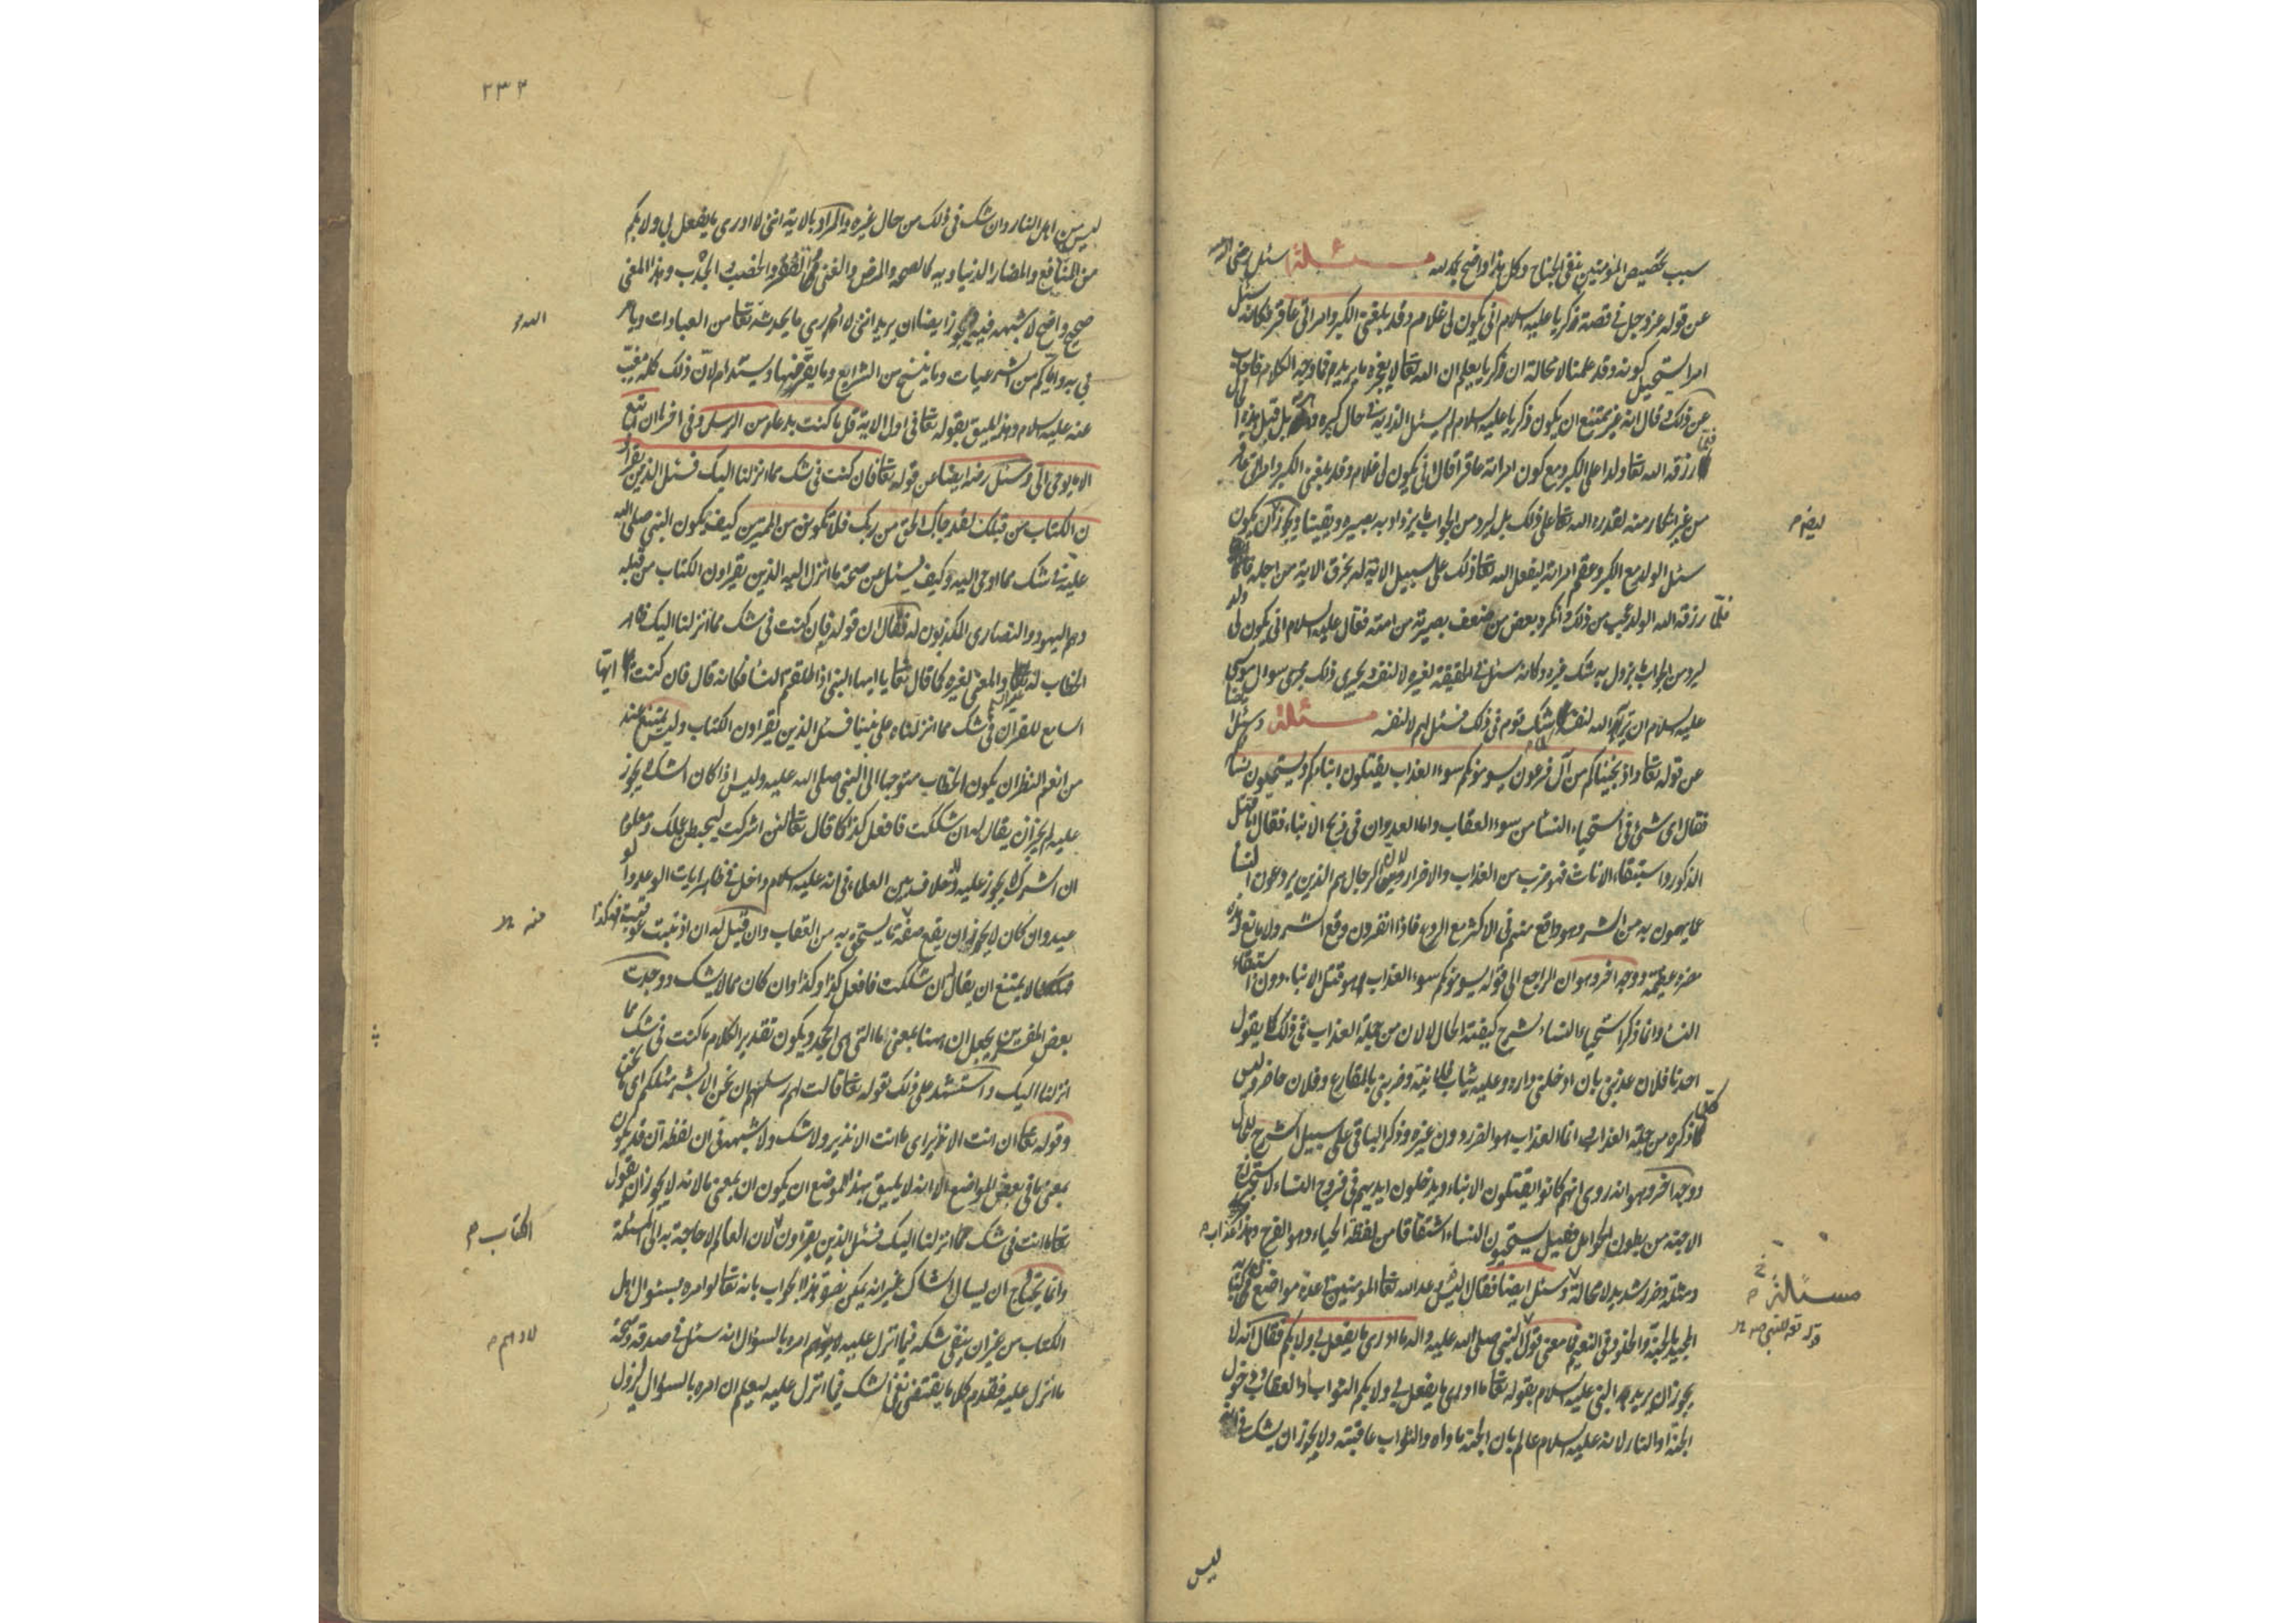 سبب تخصيص المؤمنين بنفى الجناح وكل هذا واضح بحمد الله مسئلة سئل رضى الله عنه
عن قوله عز وجل فى قصة زكريا عليه السلام انى يكون لى غلام وقد بلغنى الكبر وامراتى عاقر فكانه سئل
امرا يستحيل كونه وقد علمنا لا محالة ان زكريا يعلم ان الله تعا لا يعجزه ما يريد فما وجه الكلام فاجاب
عن ذلك وقال انه غير ممتنع ان يكون زكريا عليه السلام لم يسئل الذرية فى حال كبره وهرمه بل قبل هذه الحال
فلما رزقه الله تعا ولدا على الكبر ومع كون امراته عاقرا قال انى يكون لى غلام وقد بلغنى الكبر وامراتى عاقر
من غير انكار منه لقدرة الله تعا على ذلك بل ليرد من الجواب ما يزداد به بصيرة ويقينا ويجوز ان يكون
ليضم م
سئل الولد مع الكبر وعقم امراته ليفعل الله تعا ذلك على سبيل الاية له وخرق الاية من اجله
فلما رزقه الله الولد عجب من ذلك وانكره بعض من ضعف بصيرته من امته فقال عليه السلام انى يكون لى ولد
ليرد من الجواب ما يزول به شك غيره وكانه سئل فى الحقيقة لغيره لا لنفسه ويجرى ذلك مجرى سوال موسى
عليه السلام ان يريه الله نفسه لما شك قوم فى ذلك فسئل لهم لا لنفسه مسئلة وسئل ايضا
عن قوله تعا واذ نجيناكم من آل فرعون يسومونكم سوء العذاب يقتلون ابناءكم ويستحيون نساءكم
فقال اى شىء فى استحياء النساء من سوء العقاب وانما العدوان فى ذبح الابناء فقال اما قتل
الذكور واستبقاء الاناث فهو ضرب من العذاب والاضرار لان الرجال هم الذين يردعون النساء
عما يهمون به من الشر وهو واقع منهم فى الاكثر مع الردع فاذا انفردن وقع الشر ولا مانع وهذه
مضرة عظيمة ووجه اخر وهو ان الراجع الى قوله يسومونكم سوء العذاب هو قتل الابناء دون استبقاء
النساء وانما ذكر استحياء النساء لشرح كيفية الحال لا لان من جملة العذاب فى ذلك كما يقول
احدنا فلان عذبنى بان ادخلنى داره وعليه ثياب فلانية وضربنى بالمقارع وفلان حاضر وليس
كلما ذكره من جملة العذاب وانما العذاب هو الضرب دون غيره وذكر الباقى على سبيل الشرح للحال
ووجه اخر وهو انه روى انهم كانوا يقتلون الابناء ويدخلون ايديهم فى فروج النساء لاستخراج
الاجنة من بطون الحوامل فقيل يستحيون النساء اشتقاقا من لفظة الحياء وهو الفرج وهذا عذاب م
ومثلة وضرر شديد لا محالة وسئل ايضا فقال اليس قد وعد الله تعا المؤمنين فى عدة مواضع من كتابه
مسئلة م
المجيد بالجنة والخلود فى النعيم فما معنى قول النبى صلى الله عليه واله ما ادرى ما يفعل بى ولا بكم فقال انه لا
يجوز ان يريد النبى عليه السلام بقوله تعا ما ادرى ما يفعل بى ولا بكم الثواب او العقاب ودخول
الجنة او النار لانه عليه السلام عالم بان الجنة ماواه والثواب عاقبته ولا يجوز ان يشك فى انه
ليس
٢٣٢
ليس من اهل النار وان شك فى ذلك من حال غيره والمراد بالاية اننى لا ادرى ما يفعل بى ولا بكم
من المنافع والمضار الدنياوية كالصحة والمرض والغنى والفقر والخصب والجدب وهذا المعنى
صحيح واضح لا شبهة فيه ويجوز ايضا ان يريد اننى لا ادرى ما يحدثه تعا من العبادات ويامر
نى به واياكم من الشرعيات وما ينسخ من الشرايع وما يقر منها ويستدام لان ذلك كله مغيب
عنه عليه السلام وهذا يليق بقوله تعا فى اول الاية قل ما كنت بدعا من الرسل وفى اخرها ان اتبع
الا ما يوحى الى وسئل رضه ايضا عن قوله تعا فان كنت فى شك مما انزلنا اليك فسئل الذين يقراو
ن الكتاب من قبلك لقد جاك الحق من ربك فلا تكونن من الممترين كيف يكون النبى صلى الله
عليه فى شك مما اوحى اليه وكيف يسئل عن صحة ما انزل اليه الذين يقراون الكتاب من قبله
وهم اليهود والنصارى المكذبون له فقال ان قوله فان كنت فى شك مما انزلنا اليك ظاهر
الخطاب له والمعنى لغيره كما قال تعا يا ايها النبى اذا طلقتم النساء فكانه قال فان كنت ايها
السامع للقران فى شك مما انزلناه على نبينا فسئل الذين يقراون الكتاب وليس يمتنع عند
من انعم النظر ان يكون الخطاب متوجها الى النبى صلى الله عليه وليس اذا كان الشك لا يجوز
عليه لم يجز ان يقال له ان شككت فافعل كذا كما قال تعا لئن اشركت ليحبطن عملك ومعلوم
ان الشرك لا يجوز عليه ولا خلاف بين العلماء فى انه عليه السلام داخل فى ظاهر ايات الوعد والو
عيد وان كان لا يجوز ان يقع منه ما يستحق به من العقاب وان قيل له ان اذنبت عوقبت فهكذا
منه
لا يمتنع ان يقال له ان شككت فافعل كذا وكذا وان كان مما لا يشك ووجدت
بعض المفسرين يجعل ان ههنا بمعنى ما التى هى للجحد ويكون تقدير الكلام ما كنت فى شك مما
انزلنا اليك واستشهد على ذلك بقوله تعا قالت لهم رسلهم ان نحن الا بشر مثلكم اى ما نحن
وقوله تعا ان انت الا نذير اى ما انت الا نذير ولا شك ولا شبهة فى ان لفظة ان قد تكون
بمعنى ما فى بعض المواضع الا انه لا يليق بهذا الموضع ان يكون ان بمعنى ما لانه لا يجوز ان يقول
تعا ما انت فى شك مما انزلنا اليك فسئل الذين يقراون لان العالم لا حاجة به الى المسئلة
الكتاب م
وانما يحتاج ان يسال الشاك غير انه يمكن نصرة هذا الجواب بانه تعا لو امره بسئوال اهل
الكتاب من غير ان ينفى شكه فيما انزل عليه لاوهم امره بالسؤال انه سئل فى صدقه وصحة
لاوهم م
ما انزل عليه فقدم كلاما يقتضى نفى الشك فيما انزل عليه ليعلم ان امره بالسوال ليزول